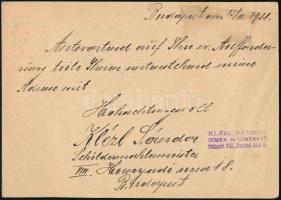 Budapest am 1931.
Antwortend auf Ihre w. Aufforde-
rung teile Ihnen untenstehend meine
Adresse mit
Hochachtungsvoll
Klézl Sándor
Schildermalermeister
VIII. utca 18.
Budapest
KLÉZL SÁNDOR
CÍMER
Budapest VIII., 18